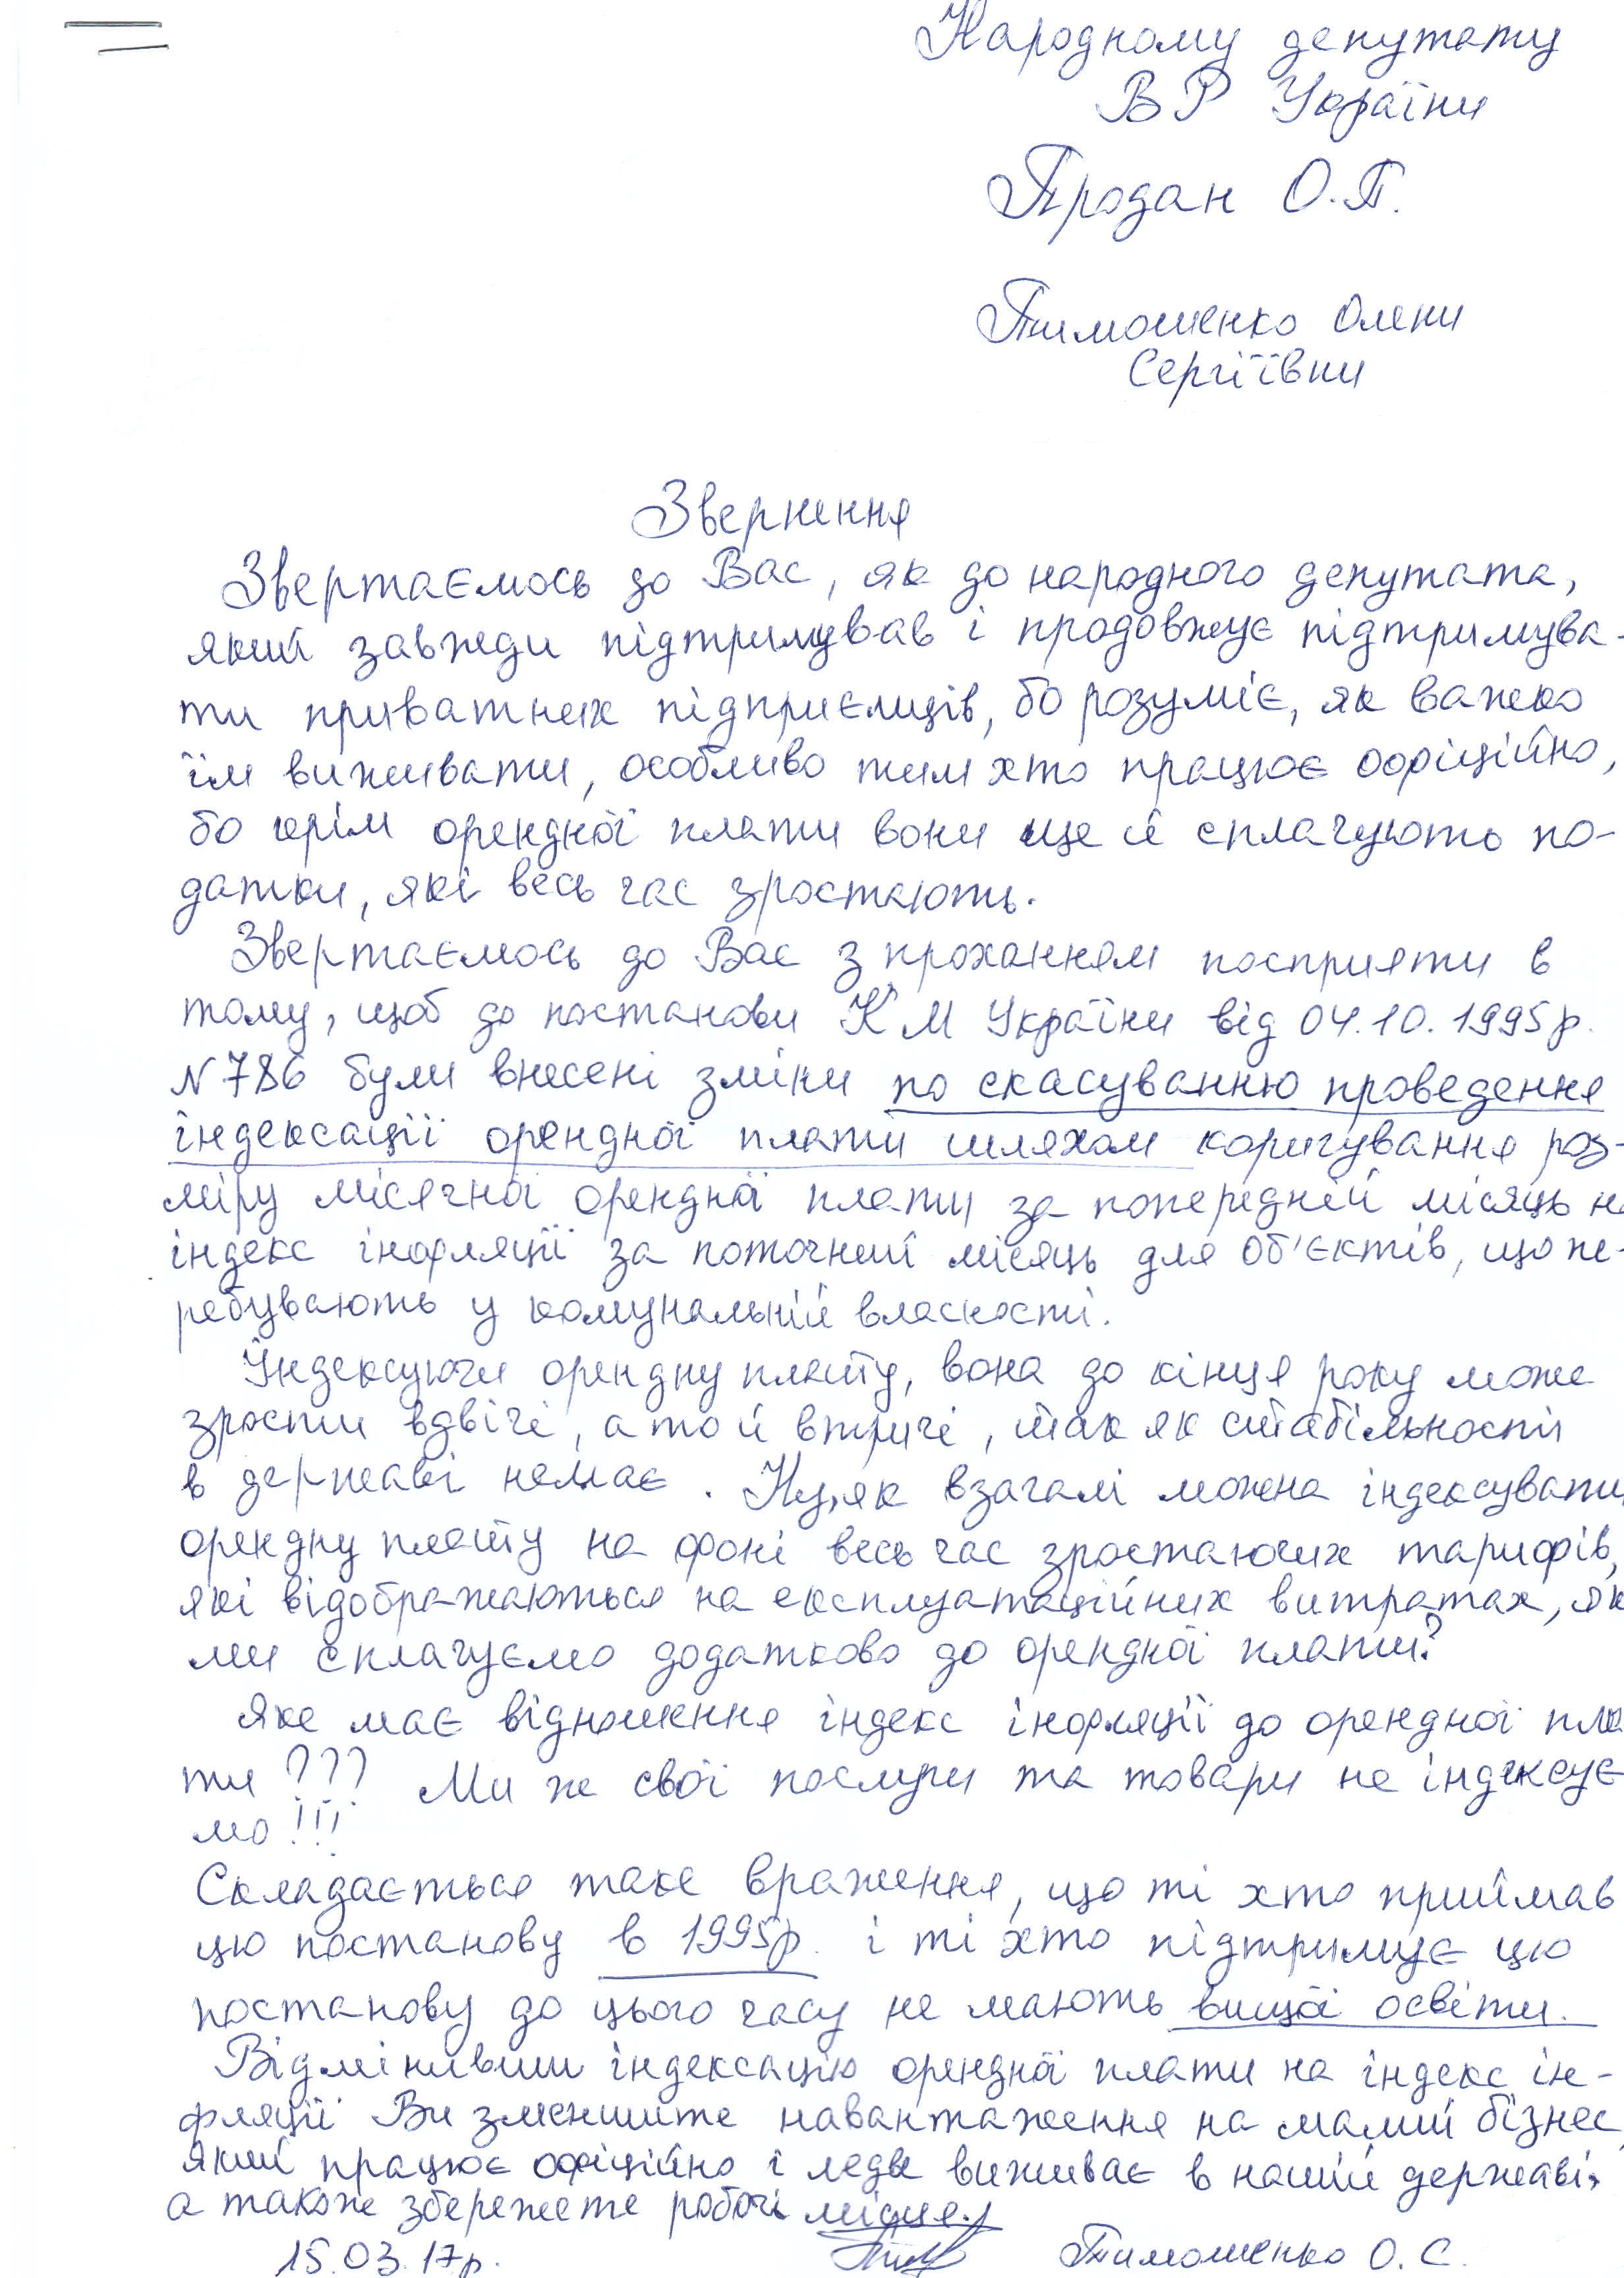 Народному депутату
ВР України
Продан О.П.
Тимошенко Олени
Сергіївни
Звернення
Звертаємось до Вас, як до народного депутата,
який завжди підтримував і продовжує підтримува-
ти приватних підприємців, бо розуміє, як важко
їм виживати, особливо тим хто працює офіційно,
бо крім орендної плати вони ще й сплачують по-
датки, які весь час зростають.
Звертаємось до Вас з проханням посприяти в
тому, щоб до постанови КМ України від 04.10.1995р.
N786 були внесені зміни по скасуванню проведення
індексації орендної плати шляхом коригування роз-
міру місячної орендної плати за попередній місяць на
індекс інфляції за поточний місяць для об'єктів, що пе-
ребувають у комунальній власності.
Індексуючи орендну плату, вона до кінця року може
зрости вдвічі, а то й втричі, так як стабільності
в державі немає. Ну, як взагалі можна індексувати
орендну плату на фоні весь час зростаючих тарифів,
які відображаються на експлуатаційних витратах, як
ми сплачуємо додатково до орендної плати?
Яке має відношення індекс інфляції до орендної пла
ти ??? Ми же свої послуги та товари не індексує
мо!!!
Складається таке враження, що ті хто приймав
цю постанову в 1995р. і ті хто підтримує цю
постанову до цього часу не мають вищої освіти.
Відмінивши індексацію орендної плати на індекс ін-
фляції Ви зменшите навантаження на малий бізнес,
який працює офіційно і ледве виживає в нашій державі,
а також збережете робочі місця.
15.03.17р. Тимошенко О. С.